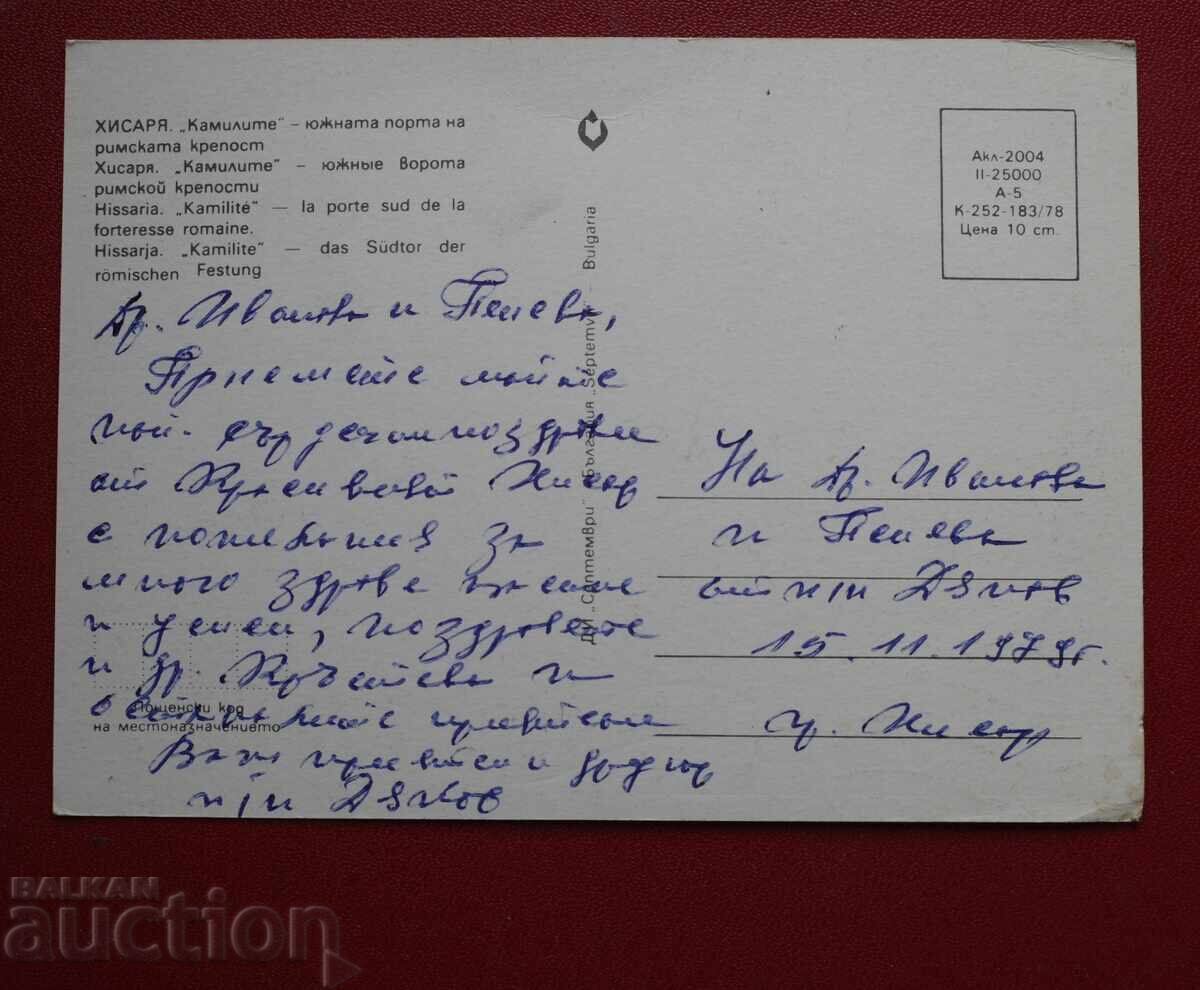 ХИСАРЯ. „Камилите" – южната порта на
римската крепост
Хисаря. „Камилите" – южные ворота
римской крепости
Hissaria. „Kamilité" — la porte sud de la
forteresse romaine.
Hissarja. „Kamilite" — das Südtor der
römischen Festung
Др. Иванова и Пенева,
Приемете моите
най-сърдечни поздрави
от красивият Хисар
с пожелания за
много здраве, щастие
и успех, поздравете
и др. Кръстева и
останалите приятели
Ваш приятел и другар
п/п Дянков
Пощенски код
на местоназначението
ДИ „Септември" България „Septemvri" – Bulgaria
Акл-2004
II-25000
А-5
К-252-183/78
Цена 10 ст.
На Др. Иванова
и Пенева
от п/п Дянков
15.11.1979г.
гр. Хисар
BALKAN
auction